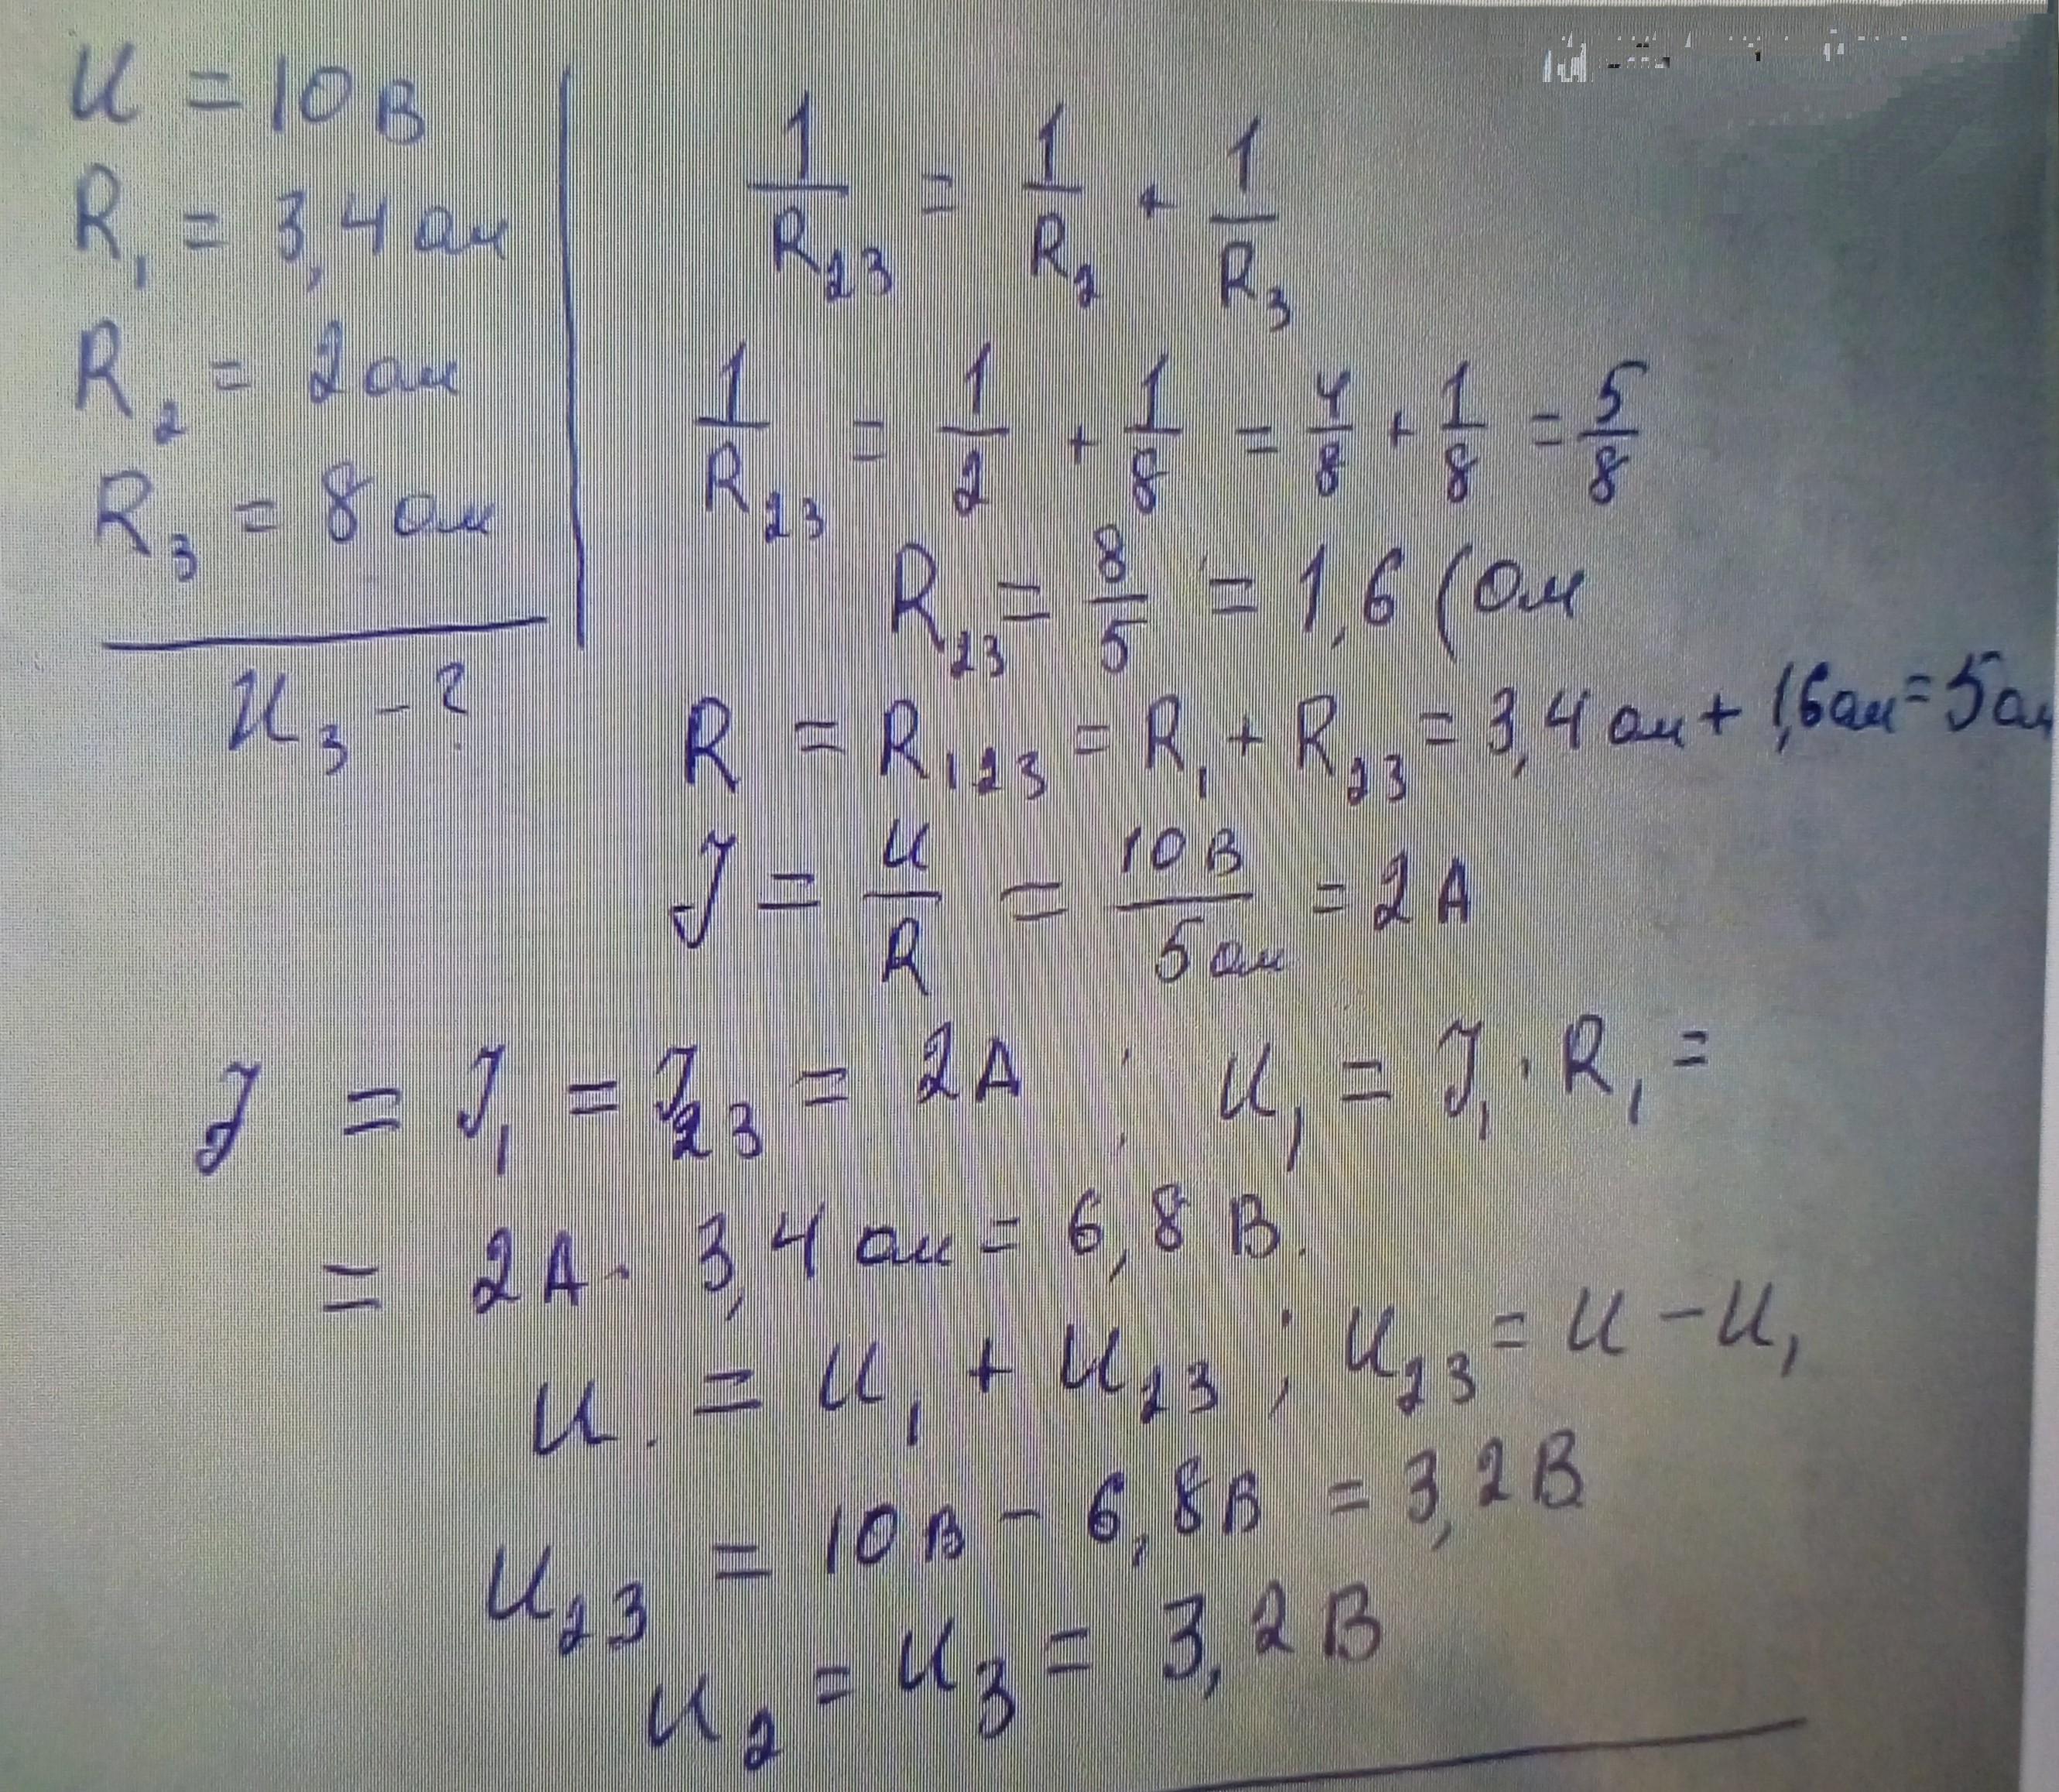 U = 10 В
R₁ = 3,4 ом
R₂ = 2 ом
R₃ = 8 ом
U₃ - ?
1/R₂₃ = 1/R₂ + 1/R₃
1/R₂₃ = 1/2 + 1/8 = 4/8 + 1/8 = 5/8
R₂₃ = 8/5 = 1,6 (Ом
R = R₁₂₃ = R₁ + R₂₃ = 3,4 ом + 1,6 ом = 5 ом
J = U/R = 10 В/5 ом = 2 А
J = J₁ = J₂₃ = 2 А ; U₁ = J₁ · R₁ =
= 2 А · 3,4 ом = 6,8 В.
U = U₁ + U₂₃ ; U₂₃ = U - U₁
U₂₃ = 10 В - 6,8 В = 3,2 В
U₂ = U₃ = 3,2 В